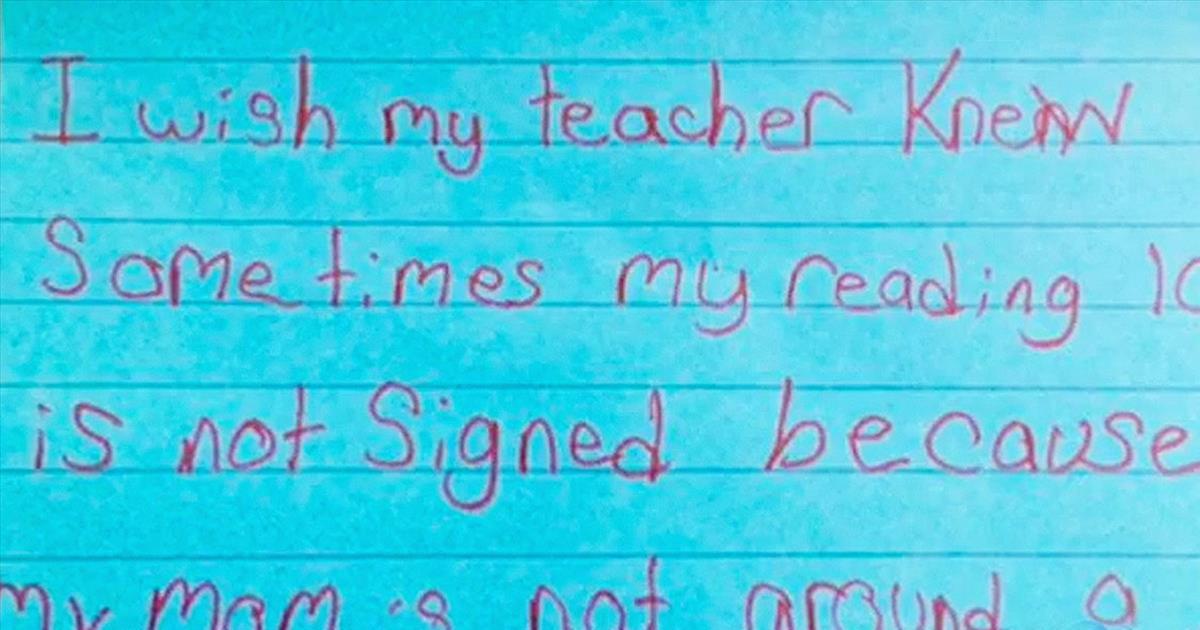 I wish my teacher Knew
Sometimes my reading lo
is not Signed because
my mom is not around a